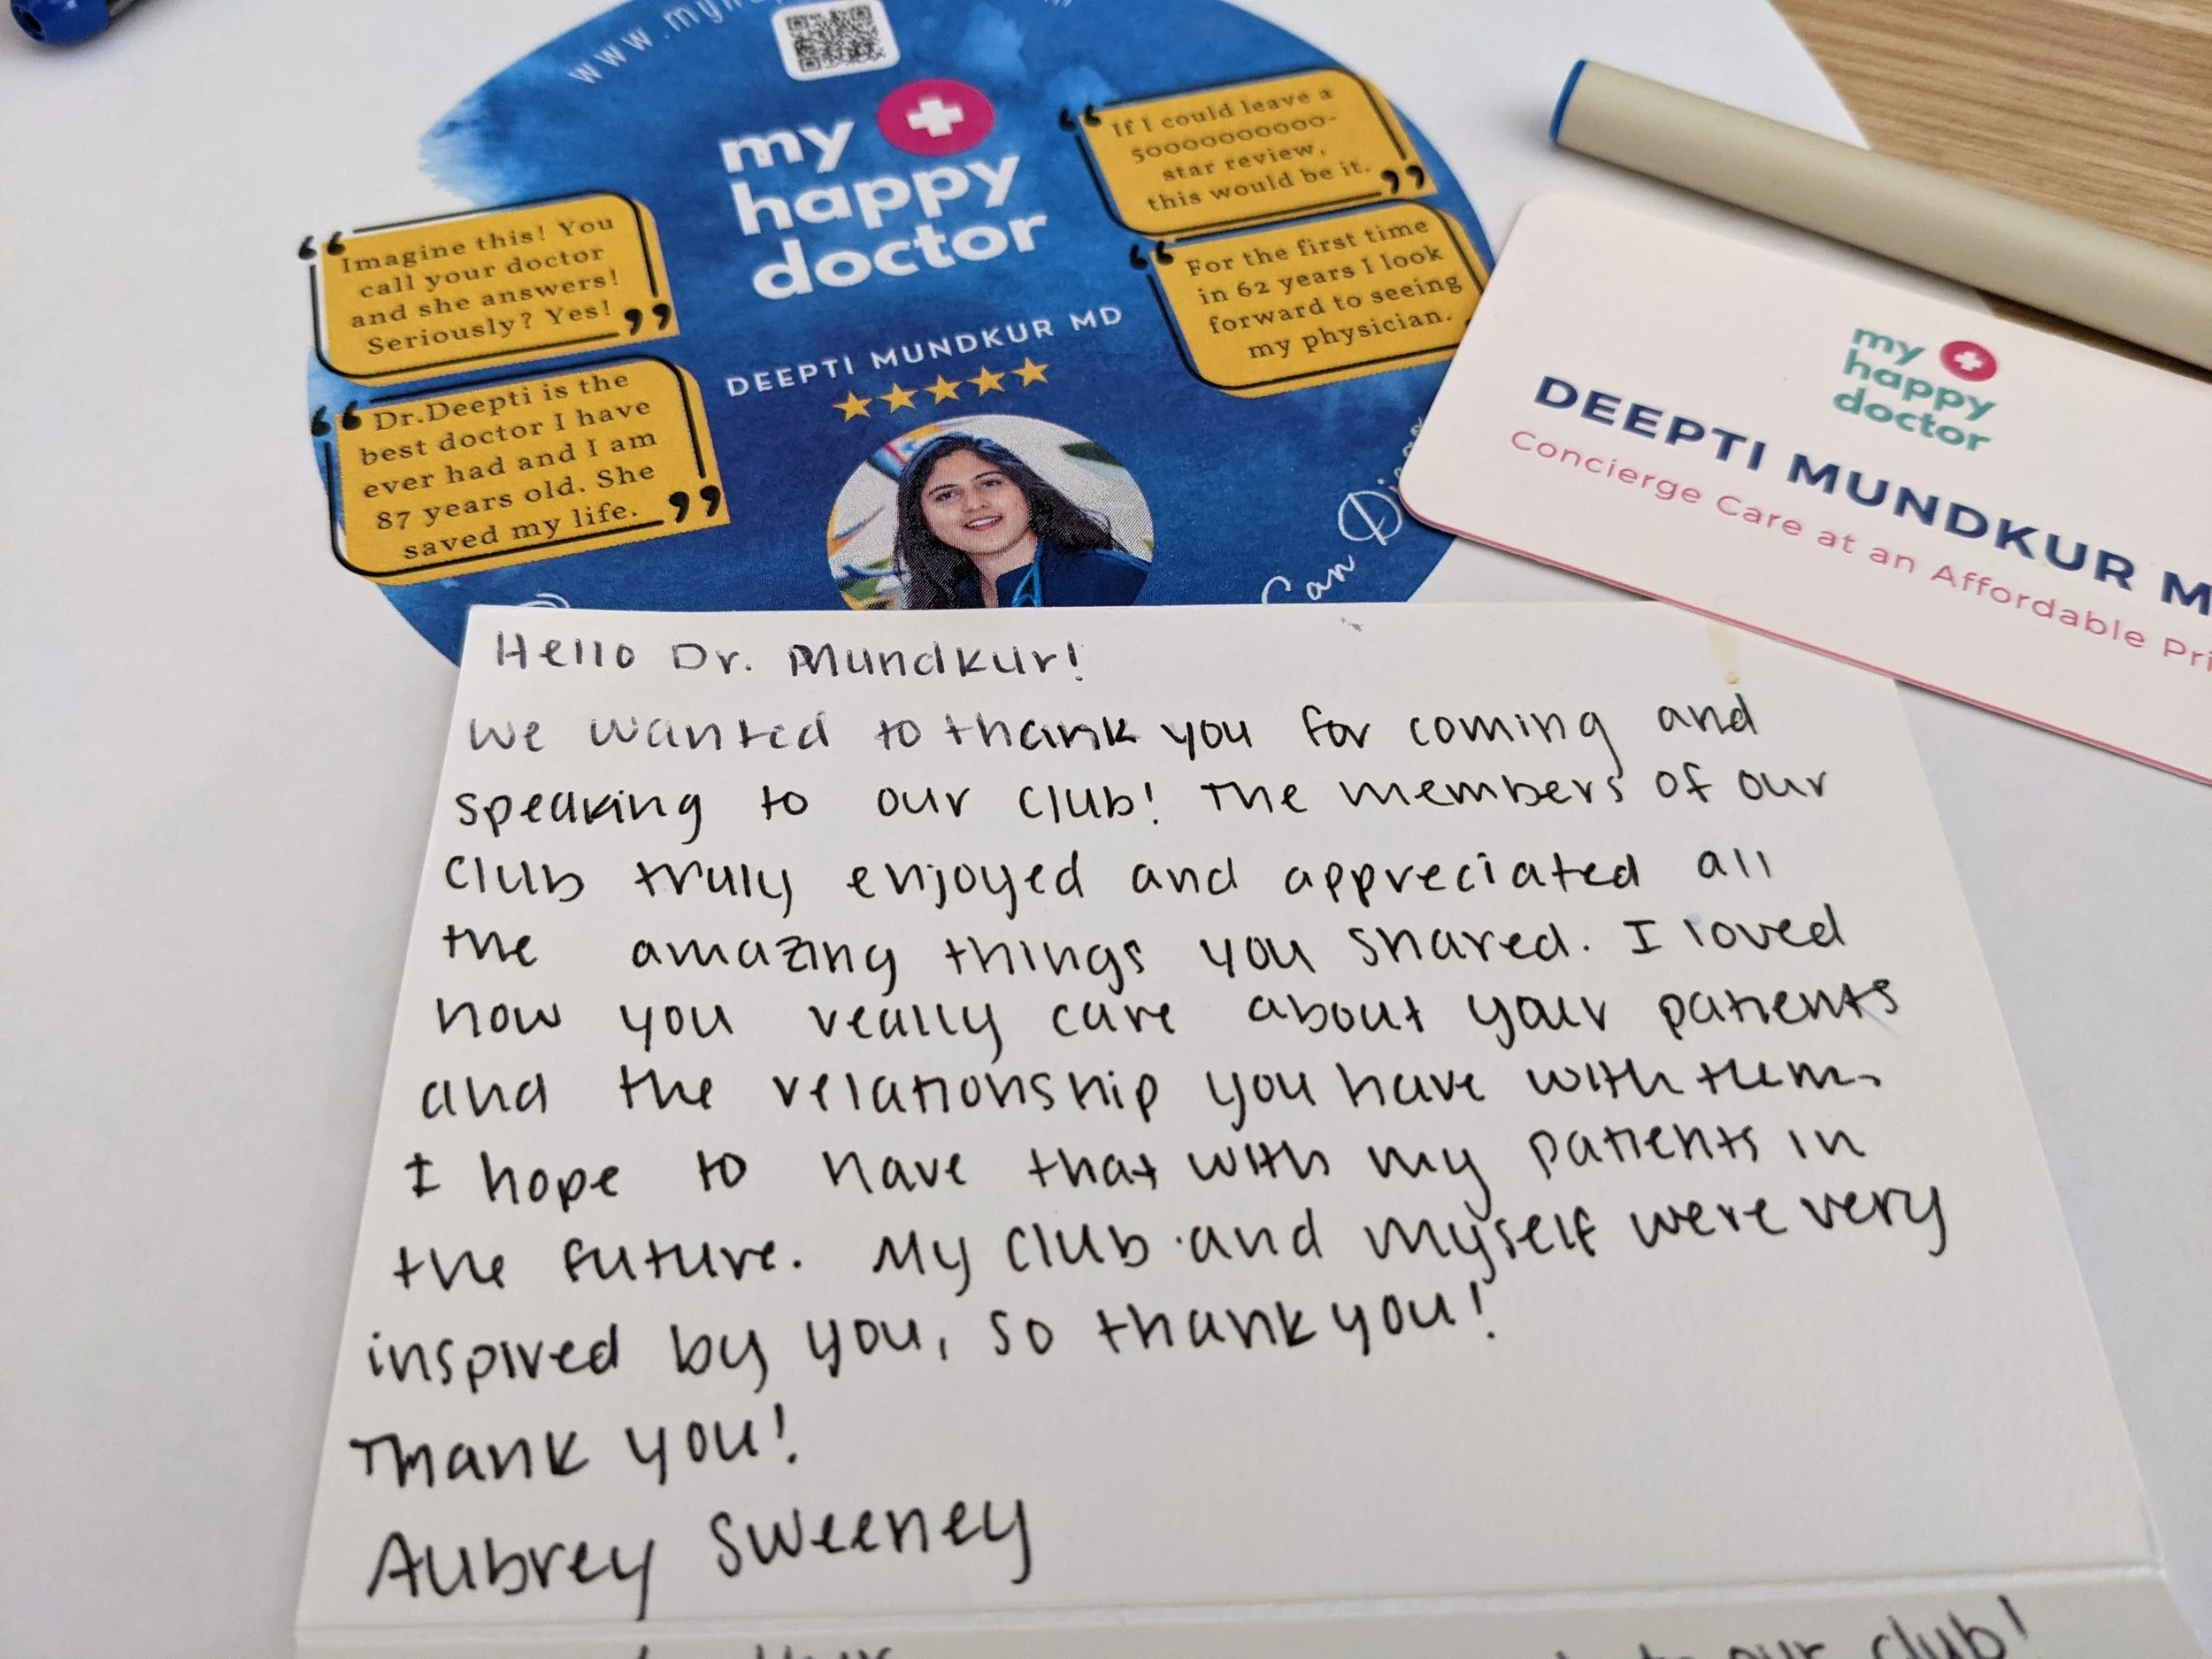 my
happy
doctor
DEEPTI MUNDKUR MD
“ Imagine this! You
call your doctor
and she answers!
Seriously? Yes! ”
“ Dr.Deepti is the
best doctor I have
ever had and I am
87 years old. She
saved my life. ”
“ If I could leave a
5000000000-
star review,
this would be it. ”
“ For the first time
in 62 years I look
forward to seeing
my physician.
Can
my
happy
doctor
DEEPTI MUNDKUR
Concierge Care at an Affordable
Hello Dr. Mundkur!
We wanted to thank you for coming and
speaking to our club! The members of our
club truly enjoyed and appreciated all
the amazing things you shared. I loved
how you really care about your patients
and the relationship you have with them.
I hope to have that with my patients in
the future. My club and myself were very
inspired by you, so thank you!
Thank you!
Aubrey Sweeney
our club!